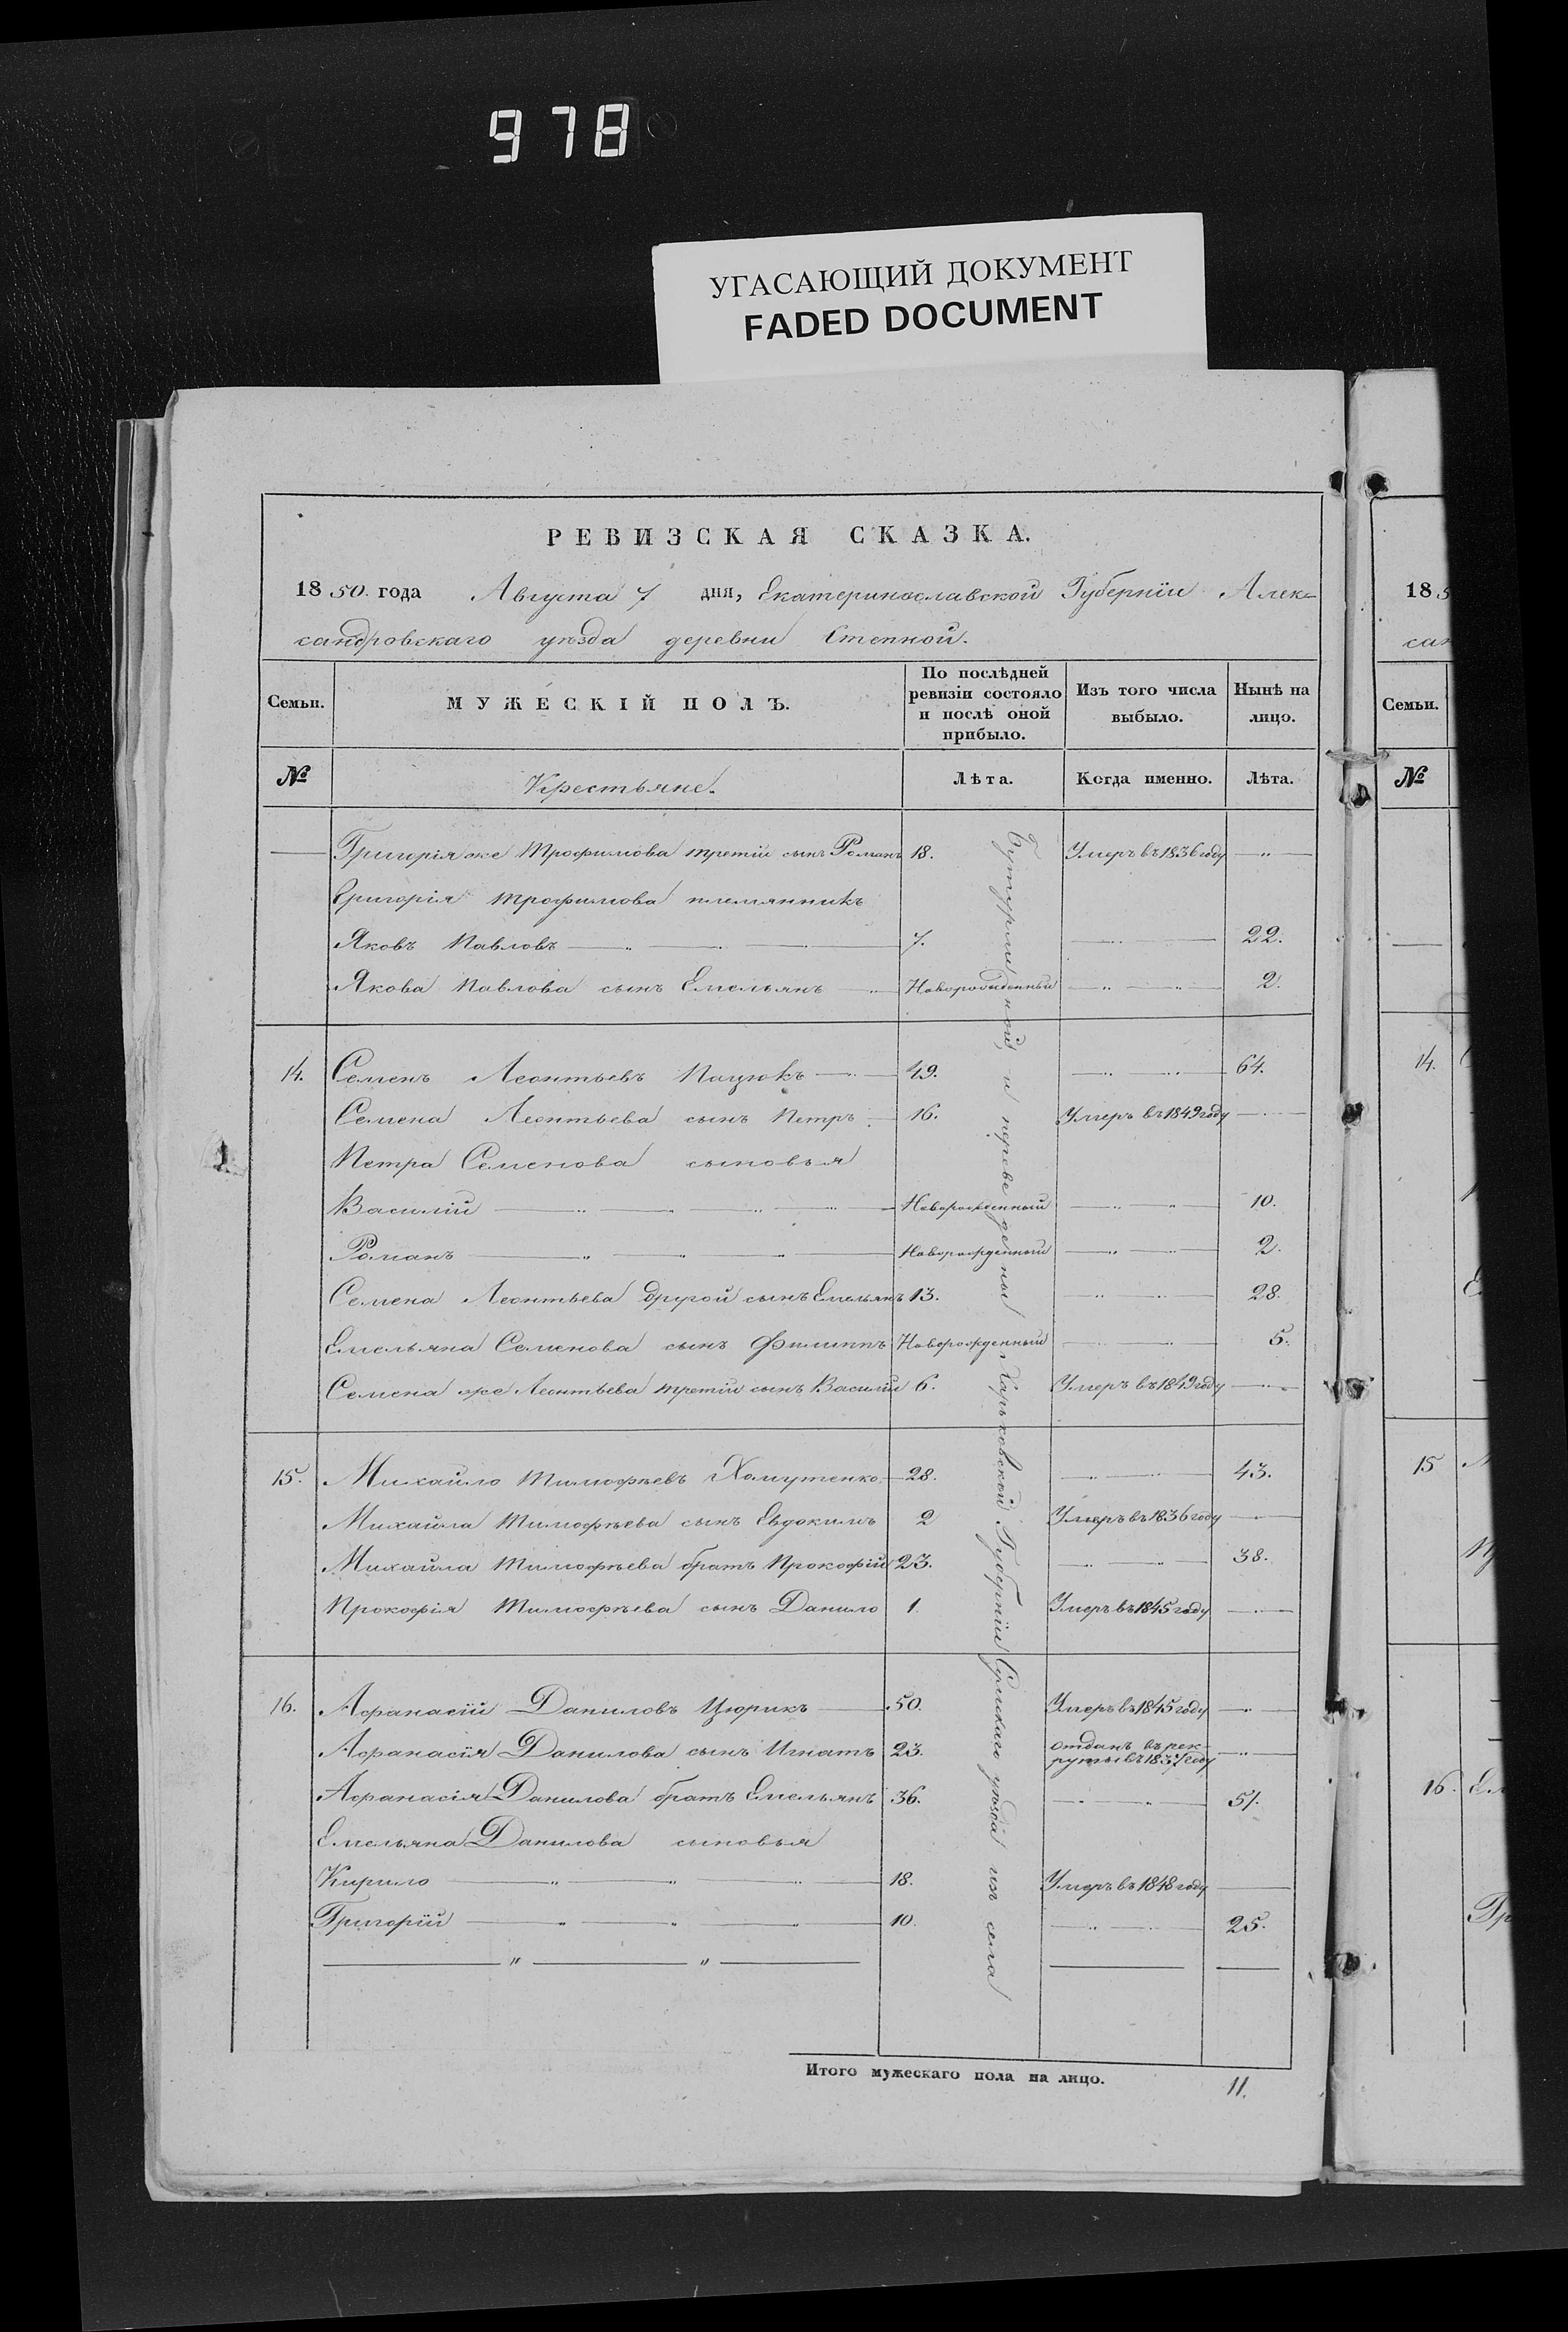 978
УГАСАЮЩИЙ ДОКУМЕНТ
FADED DOCUMENT
РЕВИЗСКАЯ СКАЗКА.
1850. года Августа 7 дня, Екатеринославской Губерніи Алек-
сандровскаго уѣзда деревни Степной.
Семьи. МУЖЕСКІЙ ПОЛЪ. По послѣдней ревизіи состояло и послѣ оной прибыло. Изъ того числа выбыло. Нынѣ на лицо.
№ Крестьяне. Лѣта. Когда именно. Лѣта.
Григорія же Трофимова третій сынъ Романъ 18. Умеръ въ 1836 году — " —
Григорія Трофимова племянникъ
Яковъ Павловъ 7. 22.
Якова Павлова сынъ Емельянъ Новорожденный 2.
14. Семенъ Леонтьевъ Пацюкъ 49. 64.
Семена Леонтьева сынъ Петръ 16. Умеръ въ 1849 году
Петра Семенова сыновья
Василій Новорожденный 10.
Романъ Новорожденный 2.
Семена Леонтьева другой сынъ Емельянъ 13. 28.
Емельяна Семенова сынъ Филиппъ Новорожденный 5.
Семена же Леонтьева третій сынъ Василій 6. Умеръ въ 1849 году
15. Михайло Тимофѣевъ Хомутенко 28. 43.
Михайла Тимофѣева сынъ Евдокимъ 2 Умеръ въ 1836 году
Михайла Тимофѣева братъ Прокофій 23. 38.
Прокофія Тимофѣева сынъ Данило 1. Умеръ въ 1845 году
16. Афанасій Даниловъ Цюрикъ 50. Умеръ въ 1845 году
Афанасія Данилова сынъ Игнатъ 23. отданъ въ рек-
руты въ 1837 году
Афанасія Данилова братъ Емельянъ 36. 51.
Емельяна Данилова сыновья
Кирило 18. Умеръ въ 1848 году
Григорій 10. 25.
и переведены Харьковской Губерніи Сумскаго уѣзда изъ села
Итого мужескаго пола на лицо. 11.
18
Семьи.
№
14.
15
16.